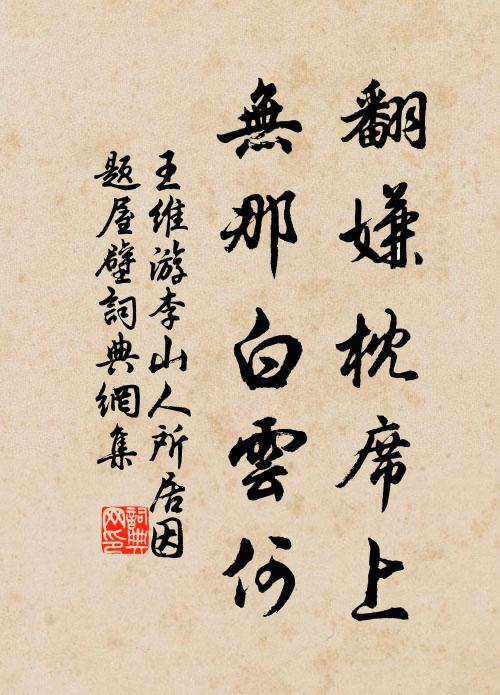 翻嫌枕席上
無那白雲何
王維游李山人所居因
題屋壁詞典網集
詞典
网印